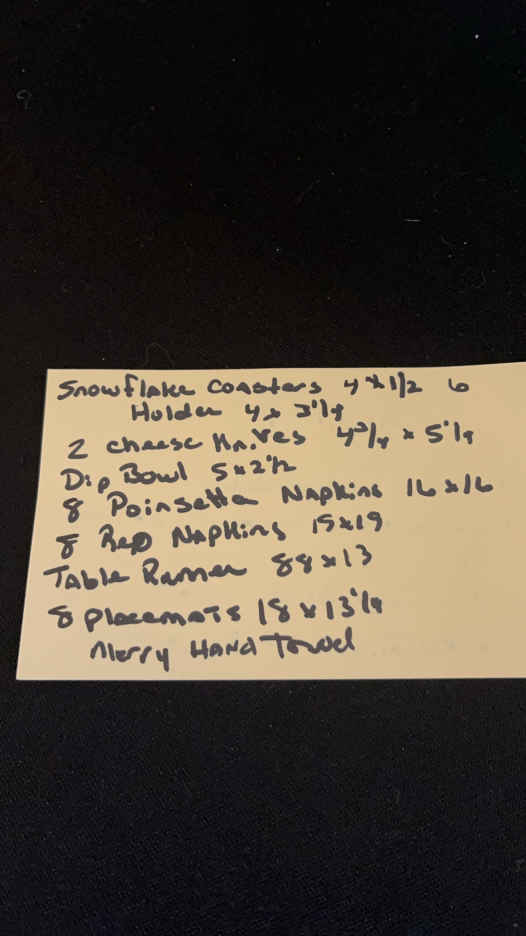 Snowflake Coasters 4 x 1/2 6
Holder 4 x 3 1/4
2 cheese Knives 4 3/4 x 5 1/4
Dip Bowl 5 x 2 1/2
8 Poinsetta Napkins 16 x 16
8 Red Napkins 19 x 19
Table Runner 88 x 13
8 placemats 18 x 13 1/4
Merry Hand Towel